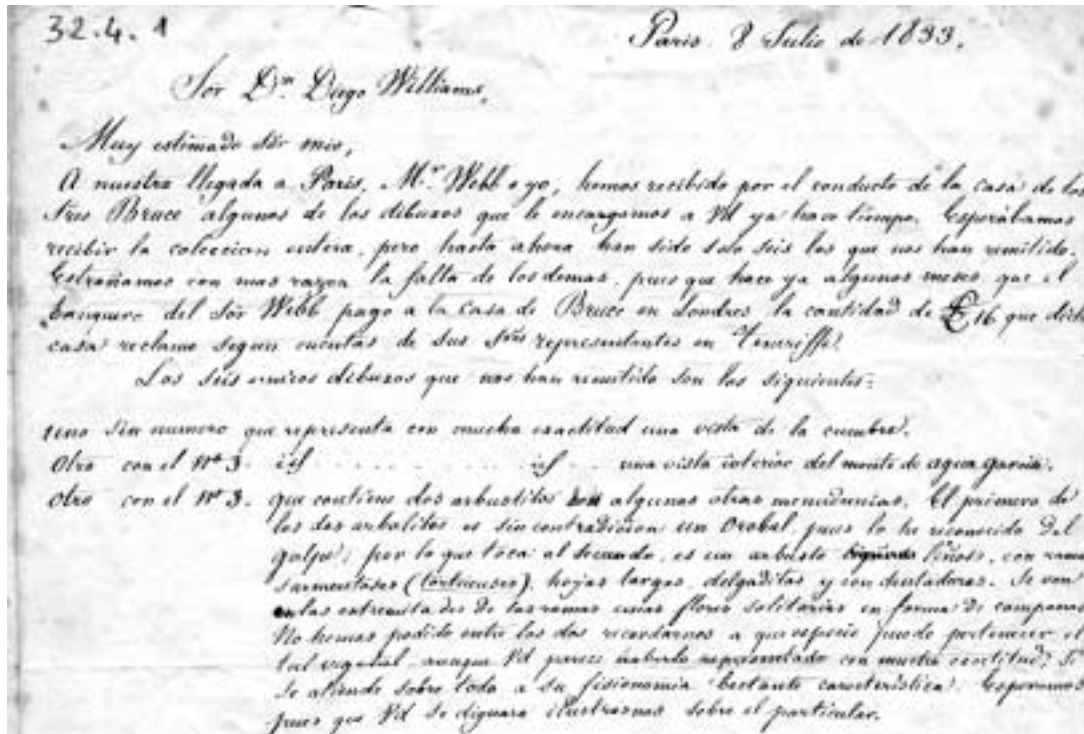 32.4.1
Paris. 8 Julio de 1833.
Sör Dn. Diego Williams,
Muy estimado Sör mio,
A nuestra llegada a Paris, Mr. Webb e yo, hemos recibido por el conducto de la casa de los
Sres Bruce algunos de los dibuxos que le encargamos a Vd ya hace tiempo. Esperábamos
recibir la coleccion entera, pero hasta ahora han sido solo seis los que nos han remitido.
Estrañamos con mas razon la falta de los demas, pues que hace ya algunos meses, que el
banquero del Sör Webb pago a la casa de Bruce en Londres la cantidad de £16 que dicha
casa reclamo segun cuentas de sus Sres representantes en Teneriffe.
Los seis unicos dibuxos que nos han remitido son los siguientes:
Uno sin numero que representa con mucha exactitud una vista de la cumbre.
Otro con el No 3. id . . . . . . . . . id . . . una vista interior del monte de agua garcia.
Otro con el No 3. que contiene dos arbustitos con algunas otras menudencias. El primero de
los dos arbolitos es sin contradicion un Orobal, pues lo he reconocido del
golpe; por lo que toca al Secundo, es un arbusto leñoso, con ramas
sarmentosas (tortuosas), hojas largas, delgaditas y con dentaduras. Se ven
en las extremitades de las ramas unas flores solitarias en forma de campanas
No hemos podido entre los dos recordarnos a que especie puede pertenecer el
tal vegetal, aunque Vd parece haberlo representado con mucha exactitud, Si
se atiende sobre todo a su fisionomia bastante caracteristica. Esperamos
pues que Vd se dignara ilustrarnos sobre el particular.